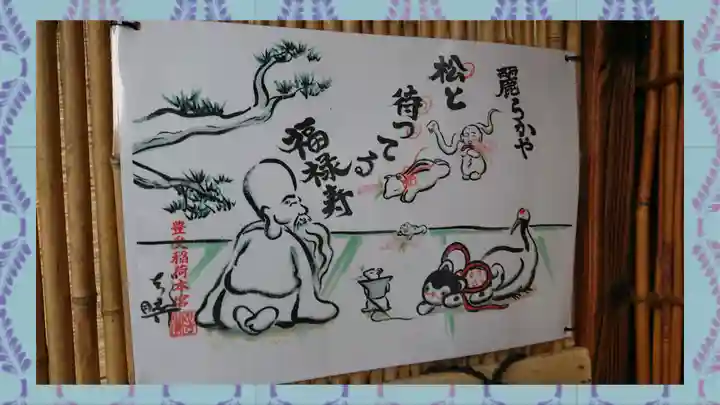 麗らかや
松と
待つてる
福禄寿
豊川稲荷本宮